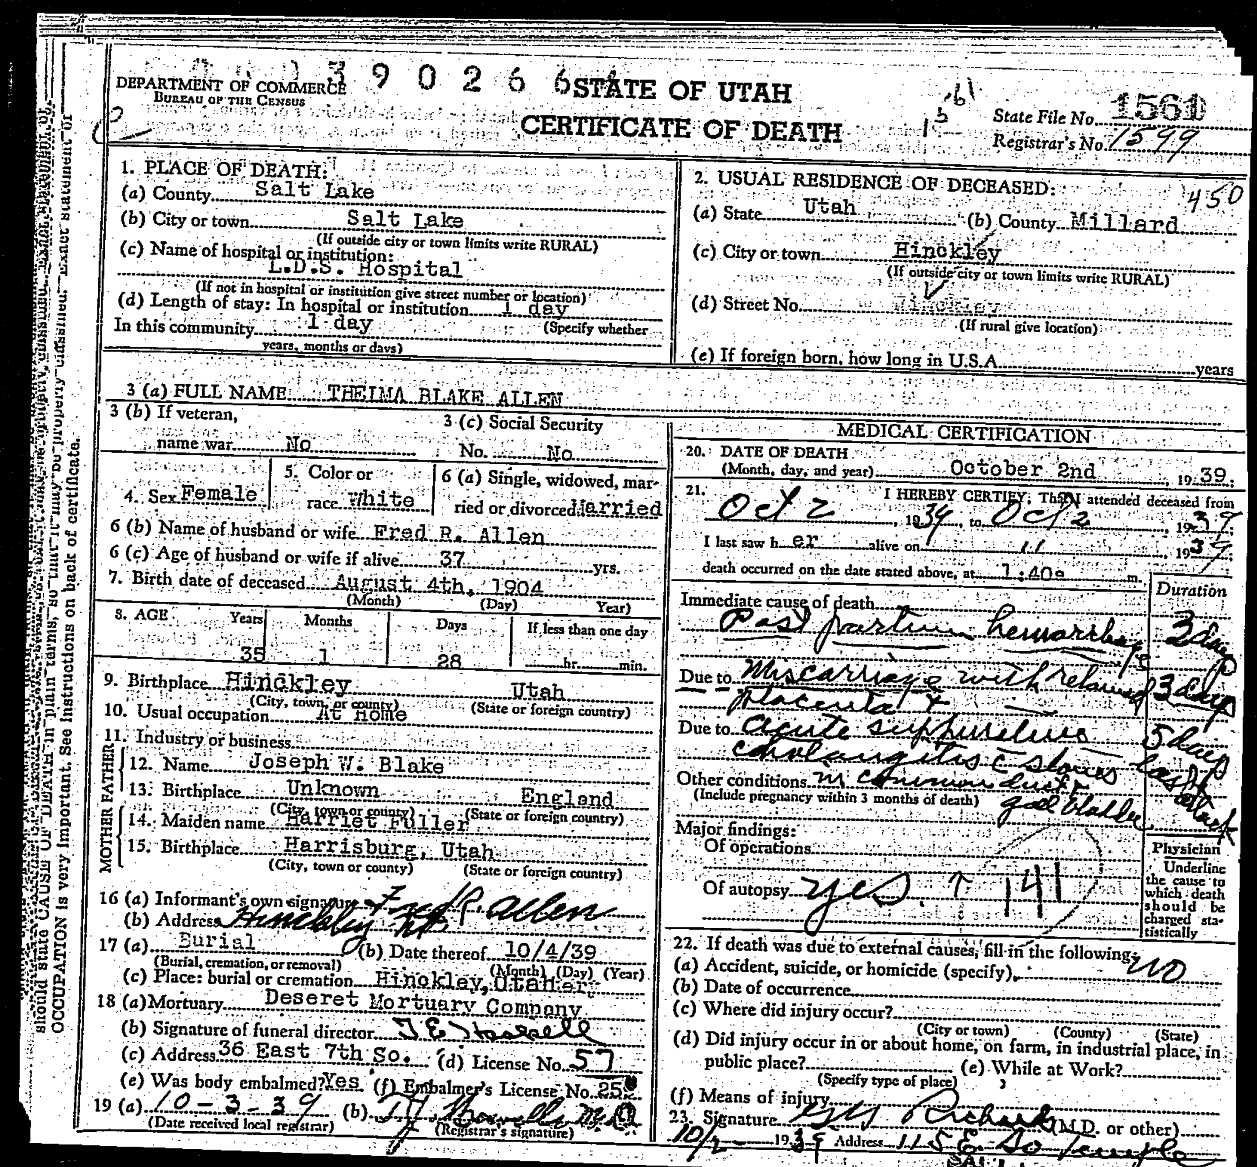 390266
DEPARTMENT OF COMMERCE
BUREAU OF THE CENSUS
STATE OF UTAH
CERTIFICATE OF DEATH
State File No. 1561
Registrar's No. 1599
1. PLACE OF DEATH:
(a) County Salt Lake
(b) City or town Salt Lake
(If outside city or town limits write RURAL)
(c) Name of hospital or institution:
L.D.S. Hospital
(If not in hospital or institution give street number or location)
(d) Length of stay: In hospital or institution 1 day
In this community 1 day (Specify whether
years, months or days)
2. USUAL RESIDENCE OF DECEASED: 450
(a) State Utah (b) County Millard
(c) City or town Hinckley
(If outside city or town limits write RURAL)
(d) Street No. Hinckley
(If rural give location)
(e) If foreign born, how long in U.S.A. years
3 (a) FULL NAME THELMA BLAKE ALLEN
3 (b) If veteran, 3 (c) Social Security
name war No No. No
4. Sex Female 5. Color or race White 6 (a) Single, widowed, married or divorced Married
6 (b) Name of husband or wife Fred R. Allen
6 (c) Age of husband or wife if alive 37 yrs.
7. Birth date of deceased August 4th, 1904
(Month) (Day) Year)
8. AGE Years Months Days If less than one day
35 1 28 hr. min.
9. Birthplace Hinckley Utah
(City, town, or county) (State or foreign country)
10. Usual occupation At Home
11. Industry or business
FATHER
12. Name Joseph W. Blake
13. Birthplace Unknown England
(City, town or county) (State or foreign country)
MOTHER
14. Maiden name Harriet Fuller
15. Birthplace Harrisburg, Utah
(City, town or county) (State or foreign country)
16 (a) Informant's own signature Fred R. Allen
(b) Address Hinckley Ut
17 (a) Burial (b) Date thereof 10/4/39
(Burial, cremation, or removal) (Month) (Day) (Year)
(c) Place: burial or cremation Hinckley, Utah
18 (a) Mortuary Deseret Mortuary Company
(b) Signature of funeral director
(c) Address 36 East 7th So. (d) License No. 57
(e) Was body embalmed? Yes (f) Embalmer's License No.
19 (a) 10-3-39 (b)
(Date received local registrar) (Registrar's signature)
MEDICAL CERTIFICATION
20. DATE OF DEATH
(Month, day, and year) October 2nd, 1939.
21. I HEREBY CERTIFY, That I attended deceased from
Oct 2, 1939, to Oct 2, 1939
I last saw her alive on 11, 1939
death occurred on the date stated above, at 1:40a m.
Duration
Immediate cause of death
Post partum hemorrhage 3 days
Due to Miscarriage with retained 3 days
placenta +
Due to acute suppurative 5 days
cholangitis c stones last
Other conditions in common duct + attack
(Include pregnancy within 3 months of death) gall bladder
Major findings:
Of operations
Of autopsy yes. 141
Physician
Underline
the cause to
which death
should be
charged sta-
tistically
22. If death was due to external causes, fill in the following:
(a) Accident, suicide, or homicide (specify) NO
(b) Date of occurrence
(c) Where did injury occur?
(City or town) (County) (State)
(d) Did injury occur in or about home, on farm, in industrial place, in
public place? (e) While at Work?
(Specify type of place)
(f) Means of injury
23. Signature Richards (M.D. or other)
10/2 1939 Address 115 E. So Temple
should state CAUSE OF DEATH in plain terms, so that it may be properly classified. Exact statement of
OCCUPATION is very important. See instructions on back of certificate.